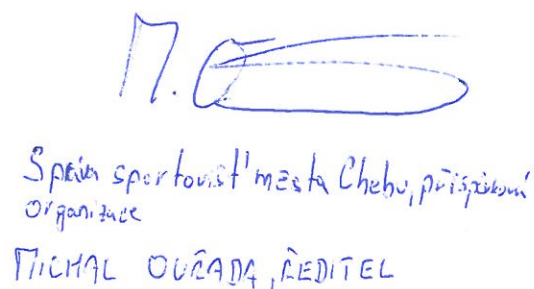 M. O
Správa sportovišť města Chebu, příspěvková
organizace
MICHAL OUŘADA, ŘEDITEL